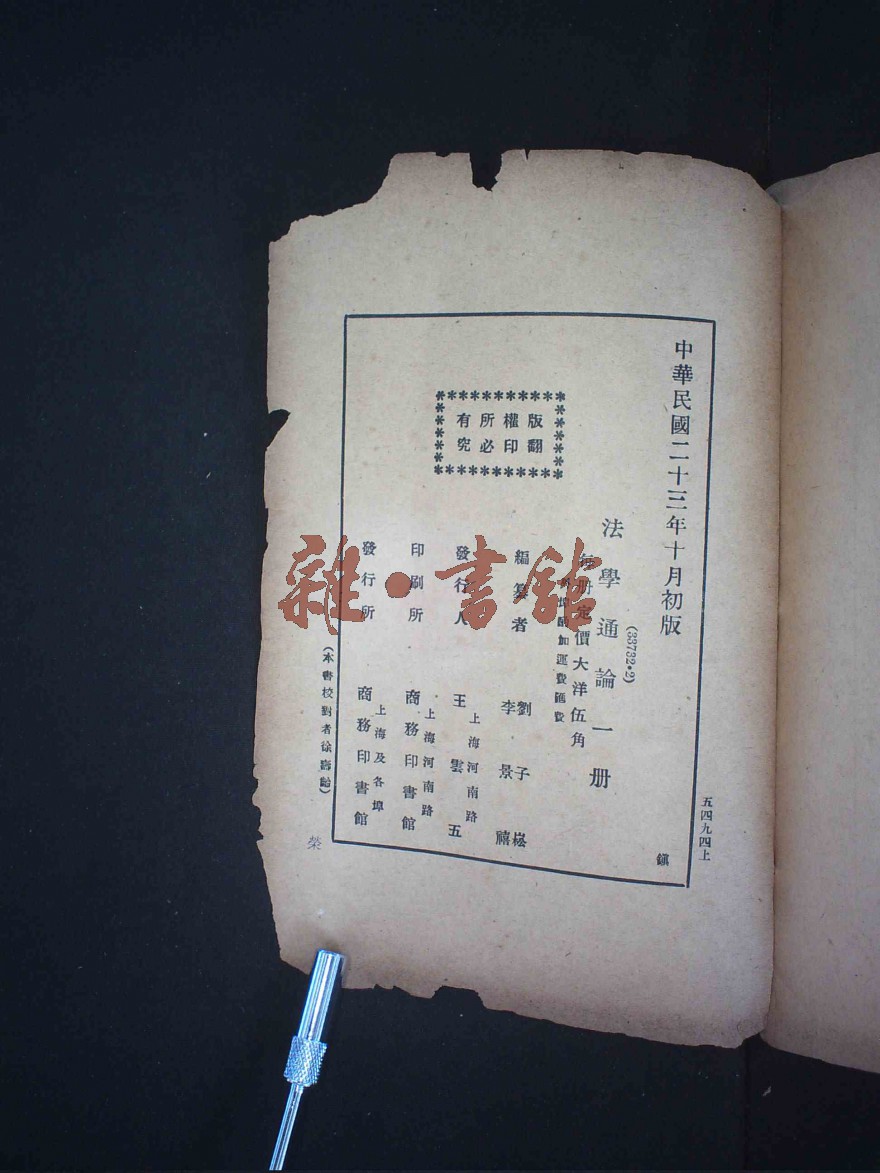 五四九四上
中華民國二十三年十月初版
鎮
(33732•2)
法學通論一册
每册定價大洋伍角
外埠酌加運費匯費
版權所有
翻印必究
編纂者
劉子崧
李景禧
發行人
上海河南路
王雲五
印刷所
上海河南路
商務印書館
發行所
上海及各埠
商務印書館
(本書校對者徐壽齡)
榮
雜·書館